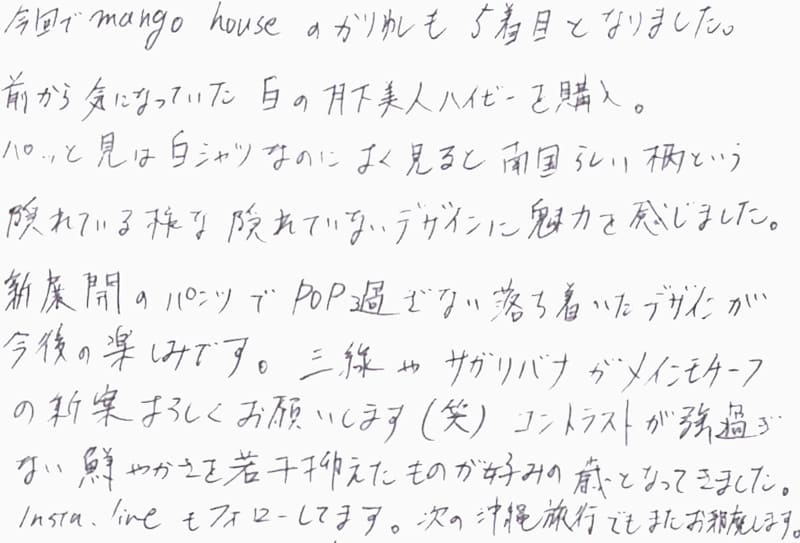 今回でmango houseのかりゆしも5着目となりました。
前から気になっていた白の月下美人ハイビーを購入。
パッと見は白シャツなのによく見ると南国らしい柄という
隠れている様な隠れていないデザインに魅力を感じました。
新展開のパンツでPOP過ぎない落ち着いたデザインが
今後の楽しみです。三線やサガリバナがメインモチーフ
の新案よろしくお願いします(笑)コントラストが強過ぎ
ない鮮やかさを若干抑えたものが好みの歳となってきました。
Insta.lineもフォローしてます。次の沖縄旅行でもまたお邪魔します。